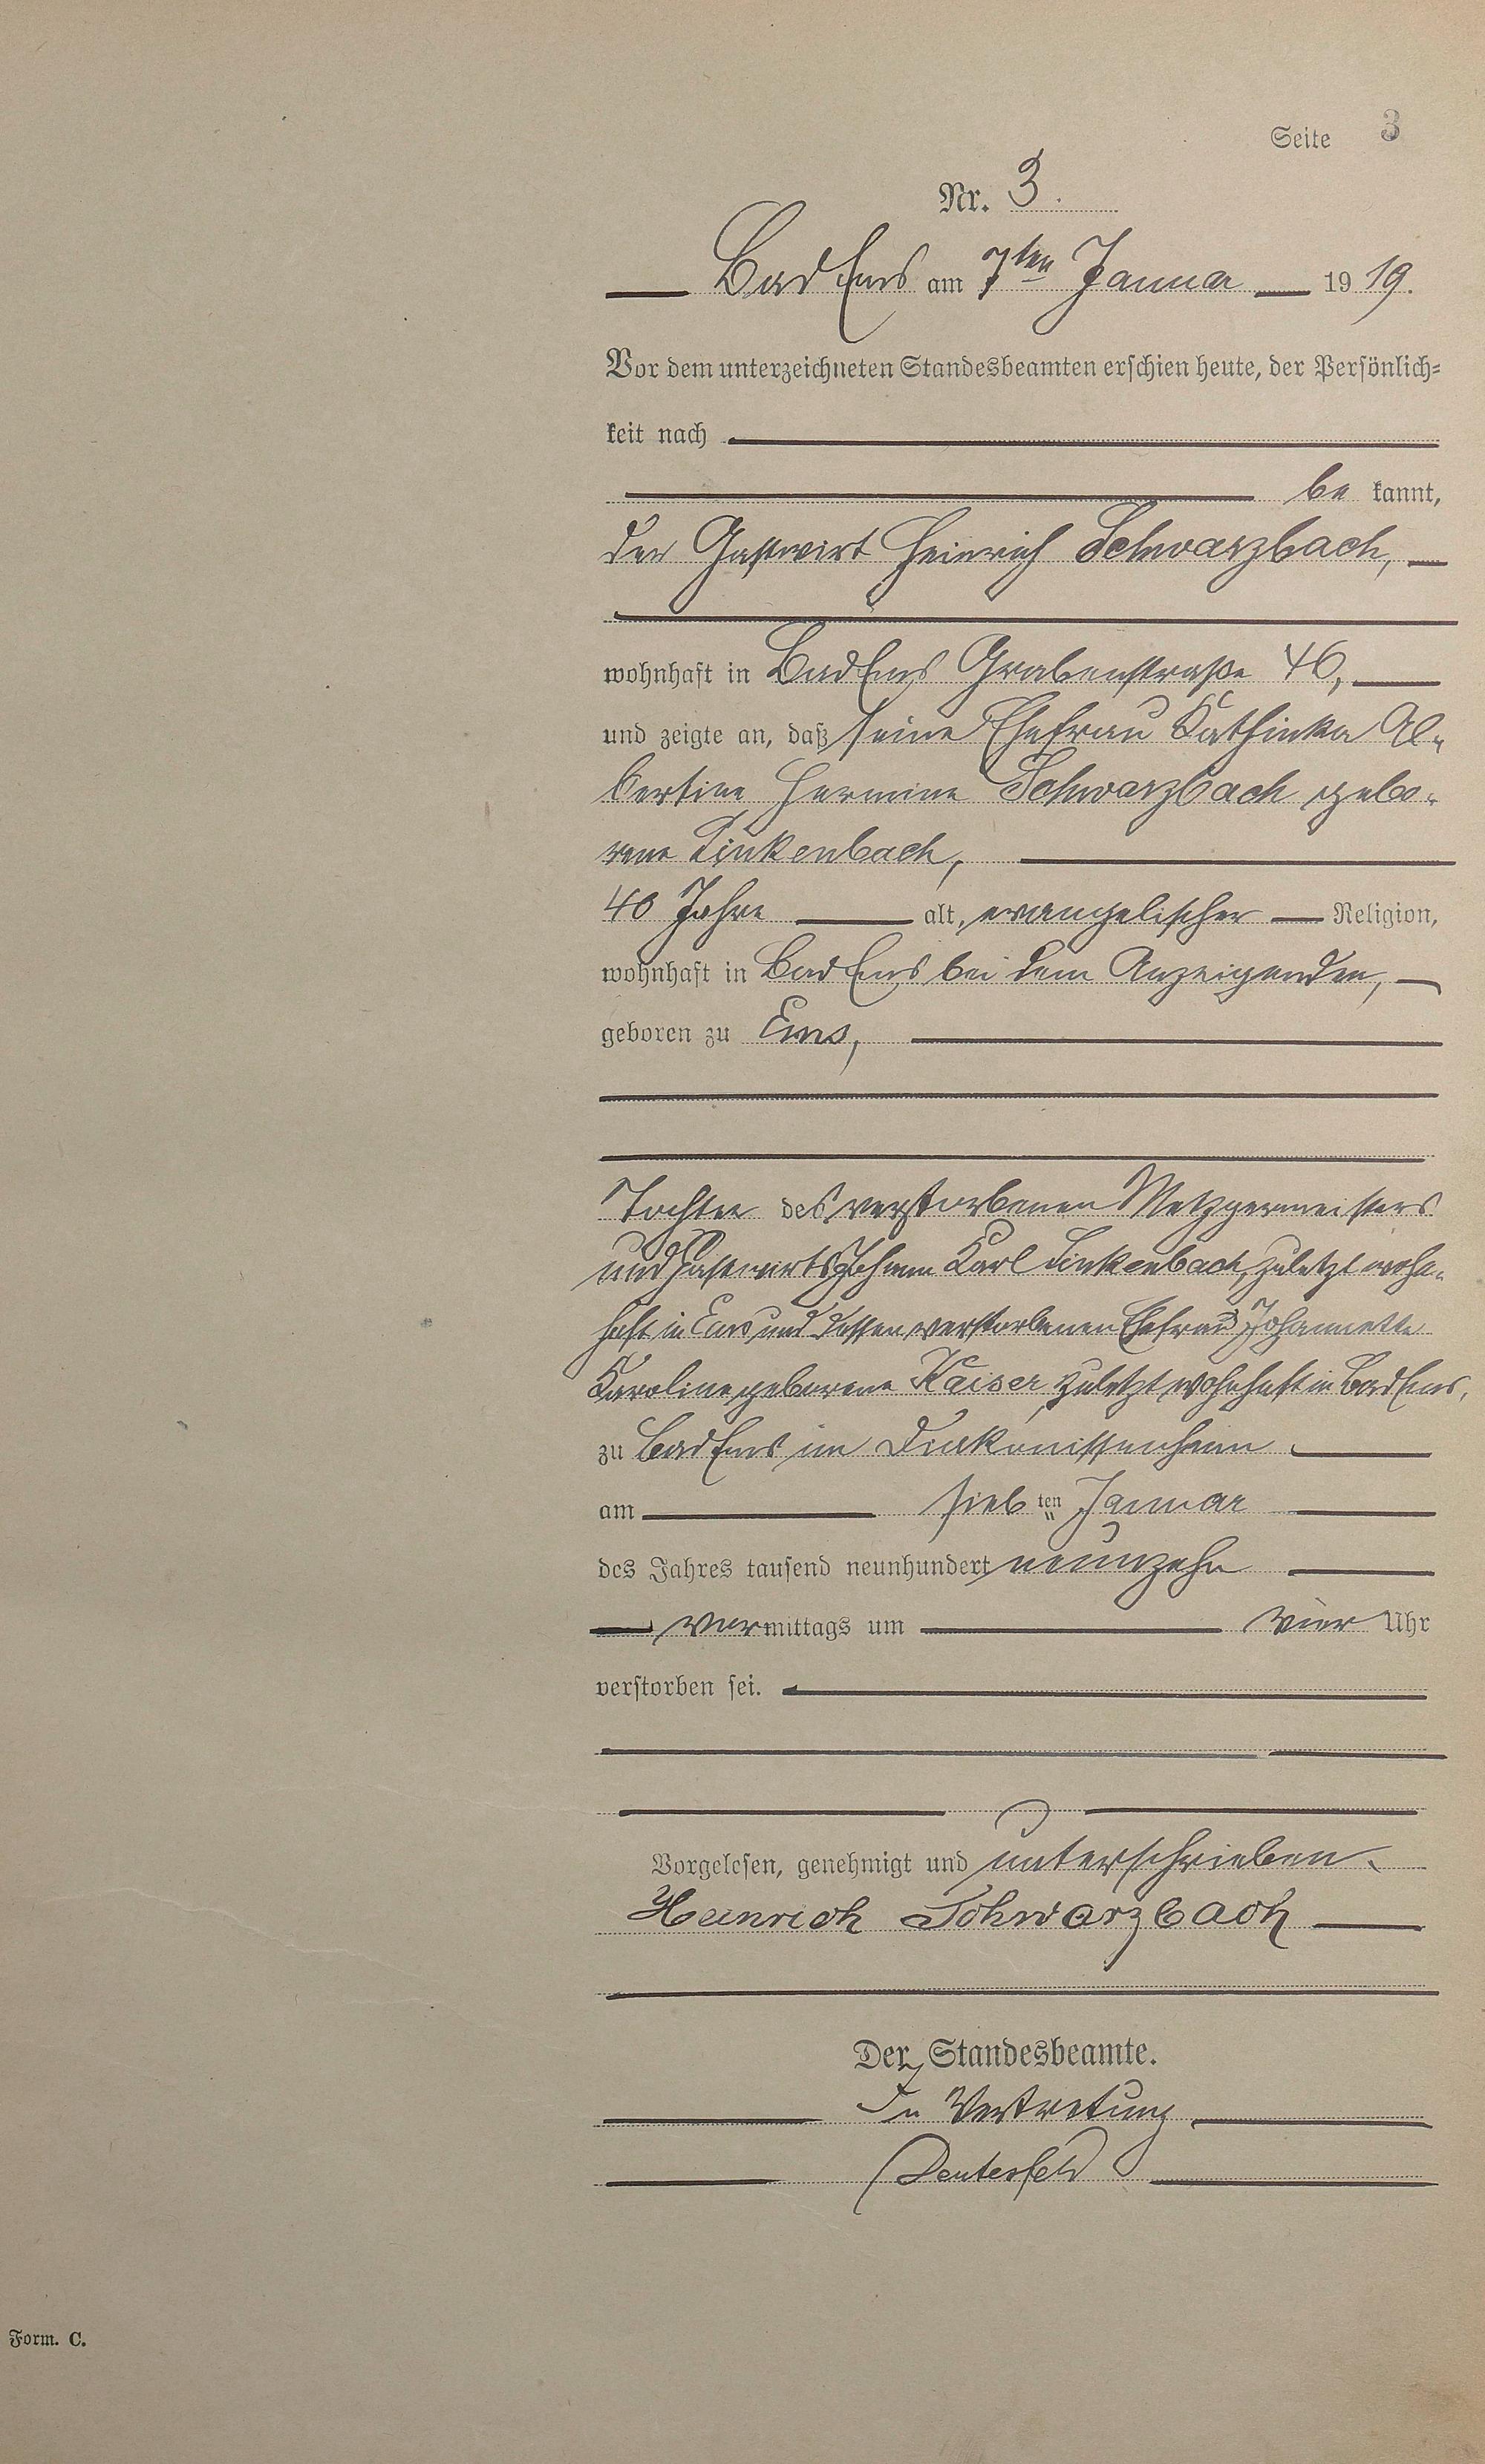 Seite 3
Nr. 3.
Bad Ems am 7ten Januar 1919.
Vor dem unterzeichneten Standesbeamten erschien heute, der Persönlich-
keit nach
be kannt,
der Gastwirt Heinrich Schwarzbach,
wohnhaft in Bad Ems Grabenstraße 46,
und zeigte an, daß seine Ehefrau Kathinka Al-
bertine Hermine Schwarzbach gebo-
rene Linkenbach,
40 Jahre alt, evangelischer Religion,
wohnhaft in Bad Ems bei dem Anzeigenden,
geboren zu Ems,
Tochter des verstorbenen Metzgermeisters
und Gastwirts Johann Karl Linkenbach, zuletzt wohn-
haft in Ems und dessen verstorbenen Ehefrau Johannette
Karoline geborene Kaiser, zuletzt wohnhaft in Bad Ems,
zu Bad Ems im Diakonissenheim
am siebten Januar
des Jahres tausend neunhundert neunzehn
vormittags um vier Uhr
verstorben sei.
Vorgelesen, genehmigt und unterschrieben.
Heinrich Schwarzbach
Der Standesbeamte.
In Vertretung
Form. C.